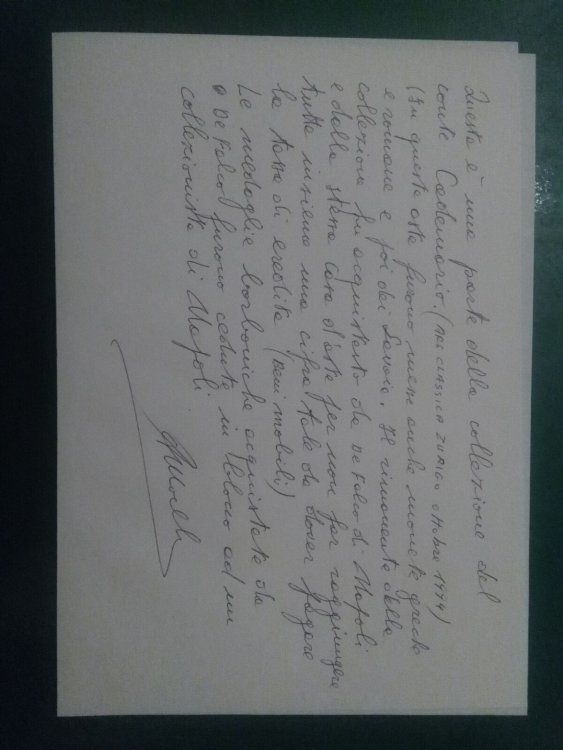 Questa è una parte della collezione del
conte Cademario. (NAC CLASSICA ZURIGO ottobre 1994)
(In questa asta furono messe anche monete greche
e romane e poi dei Savoia. Il rimanente della
collezione fu acquistato da De Falco di Napoli
e dalla stessa Casa d'aste per non far raggiungere
tutte insieme una cifra tale da dover pagare
la tassa di eredità (beni mobili)
Le medaglie borboniche acquistate da
De Falco furono cedute in blocco ad un
collezionista di Napoli.